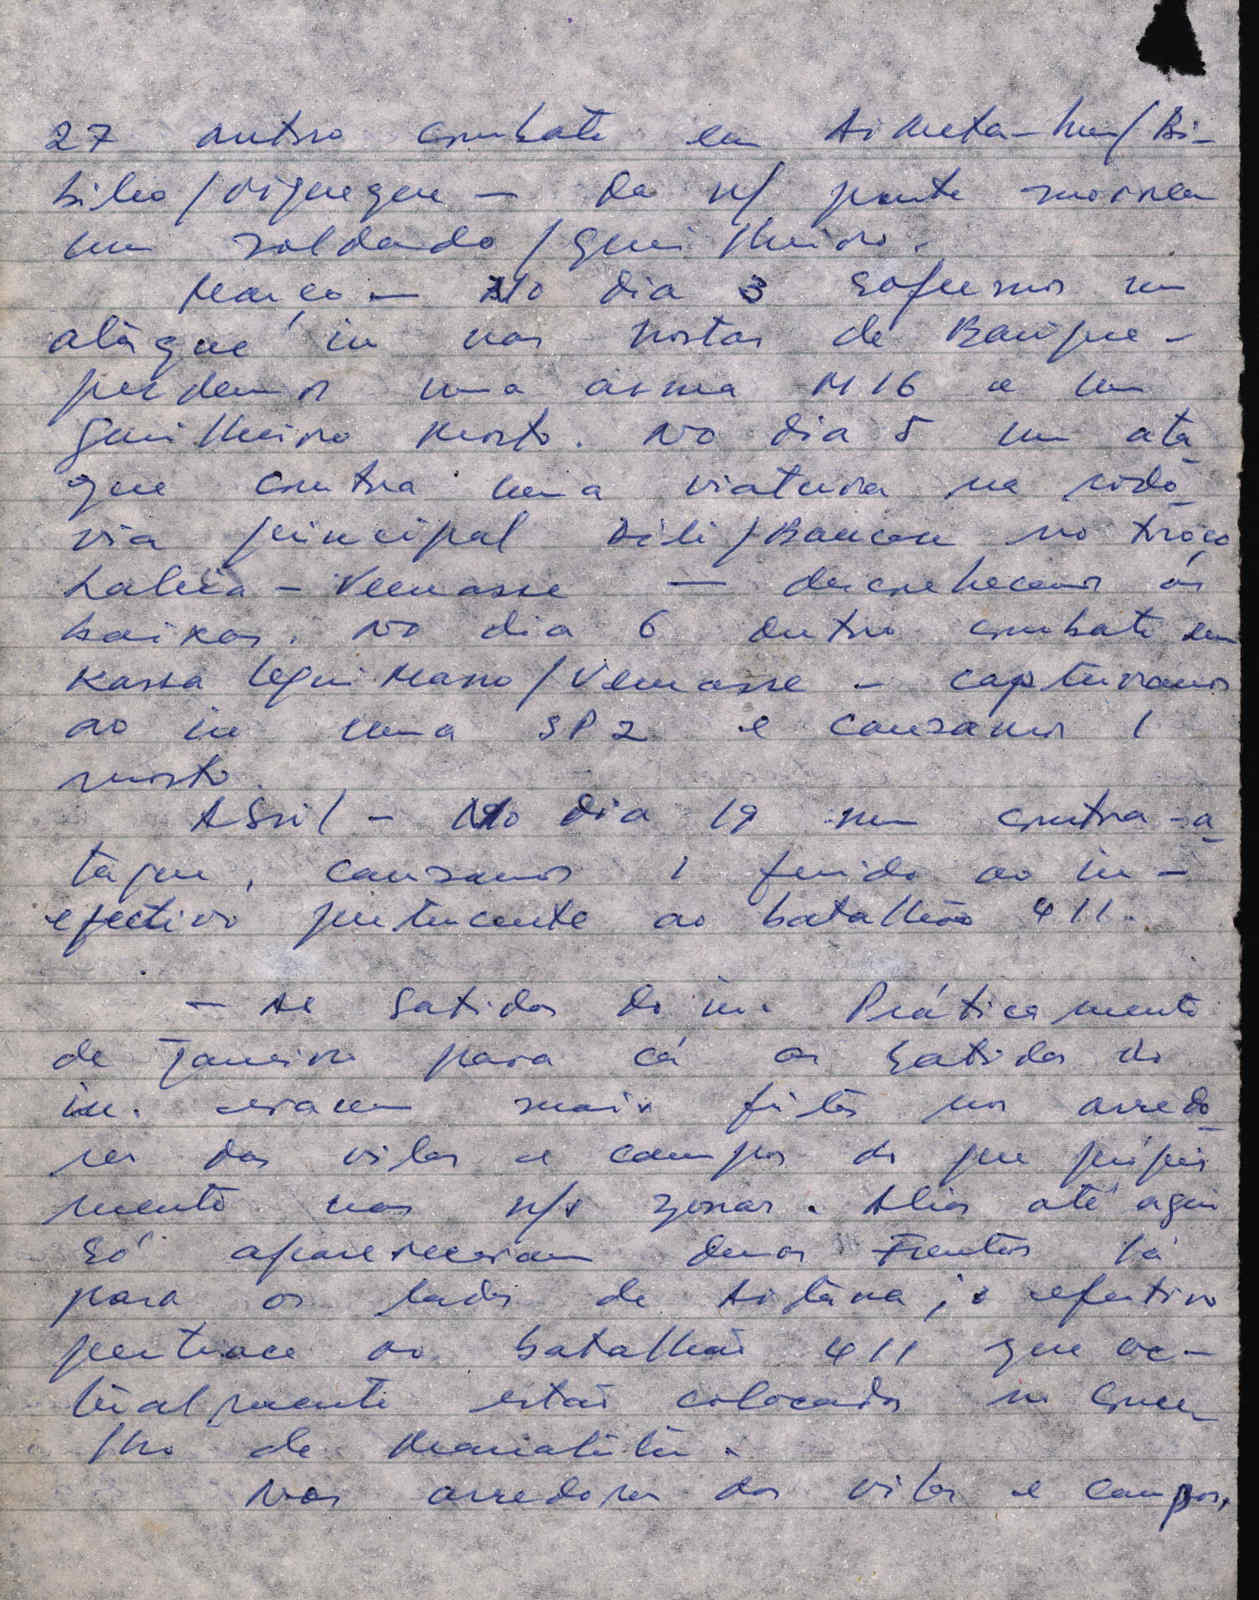 27 outro combate em Aimeta-hun/Bi-
bileo/Viqueque — Da n/ parte morreu
um soldado/guerilheiro.
Março — No dia 3 sofremos um
ataque in nas hortas de Baiique -
perdemos uma arma M16 e um
guerilheiro morto. No dia 5 um ata
que contra uma viatura na rodo
via principal Dili/Baucau no troço
Laleia - Vemasse — desconhecemos as
baixas. No dia 6 outro combate em
Kassa Legui Masso/Vemasse - capturamos
ao in uma SP2 e causamos 1
morto
Abril - No dia 19 num contra-a
taque, causamos 1 ferido ao in -
efectivo pertencente ao batalhão 411.
- As batidas do in. Práticamente
de Janeiro para cá as batidas do
in. eram mais feitas nos arredo
res das vilas e campos do que própria
mente nas n/s zonas. Alias até aqui
só apareceram duas frentes lá
para os lados de Aitana; o efectivo
pertence ao batalhão 411 que ac-
tualmente estão colocados no Conce
lho de Manatuto.
Nos arredores das vilas e campos,